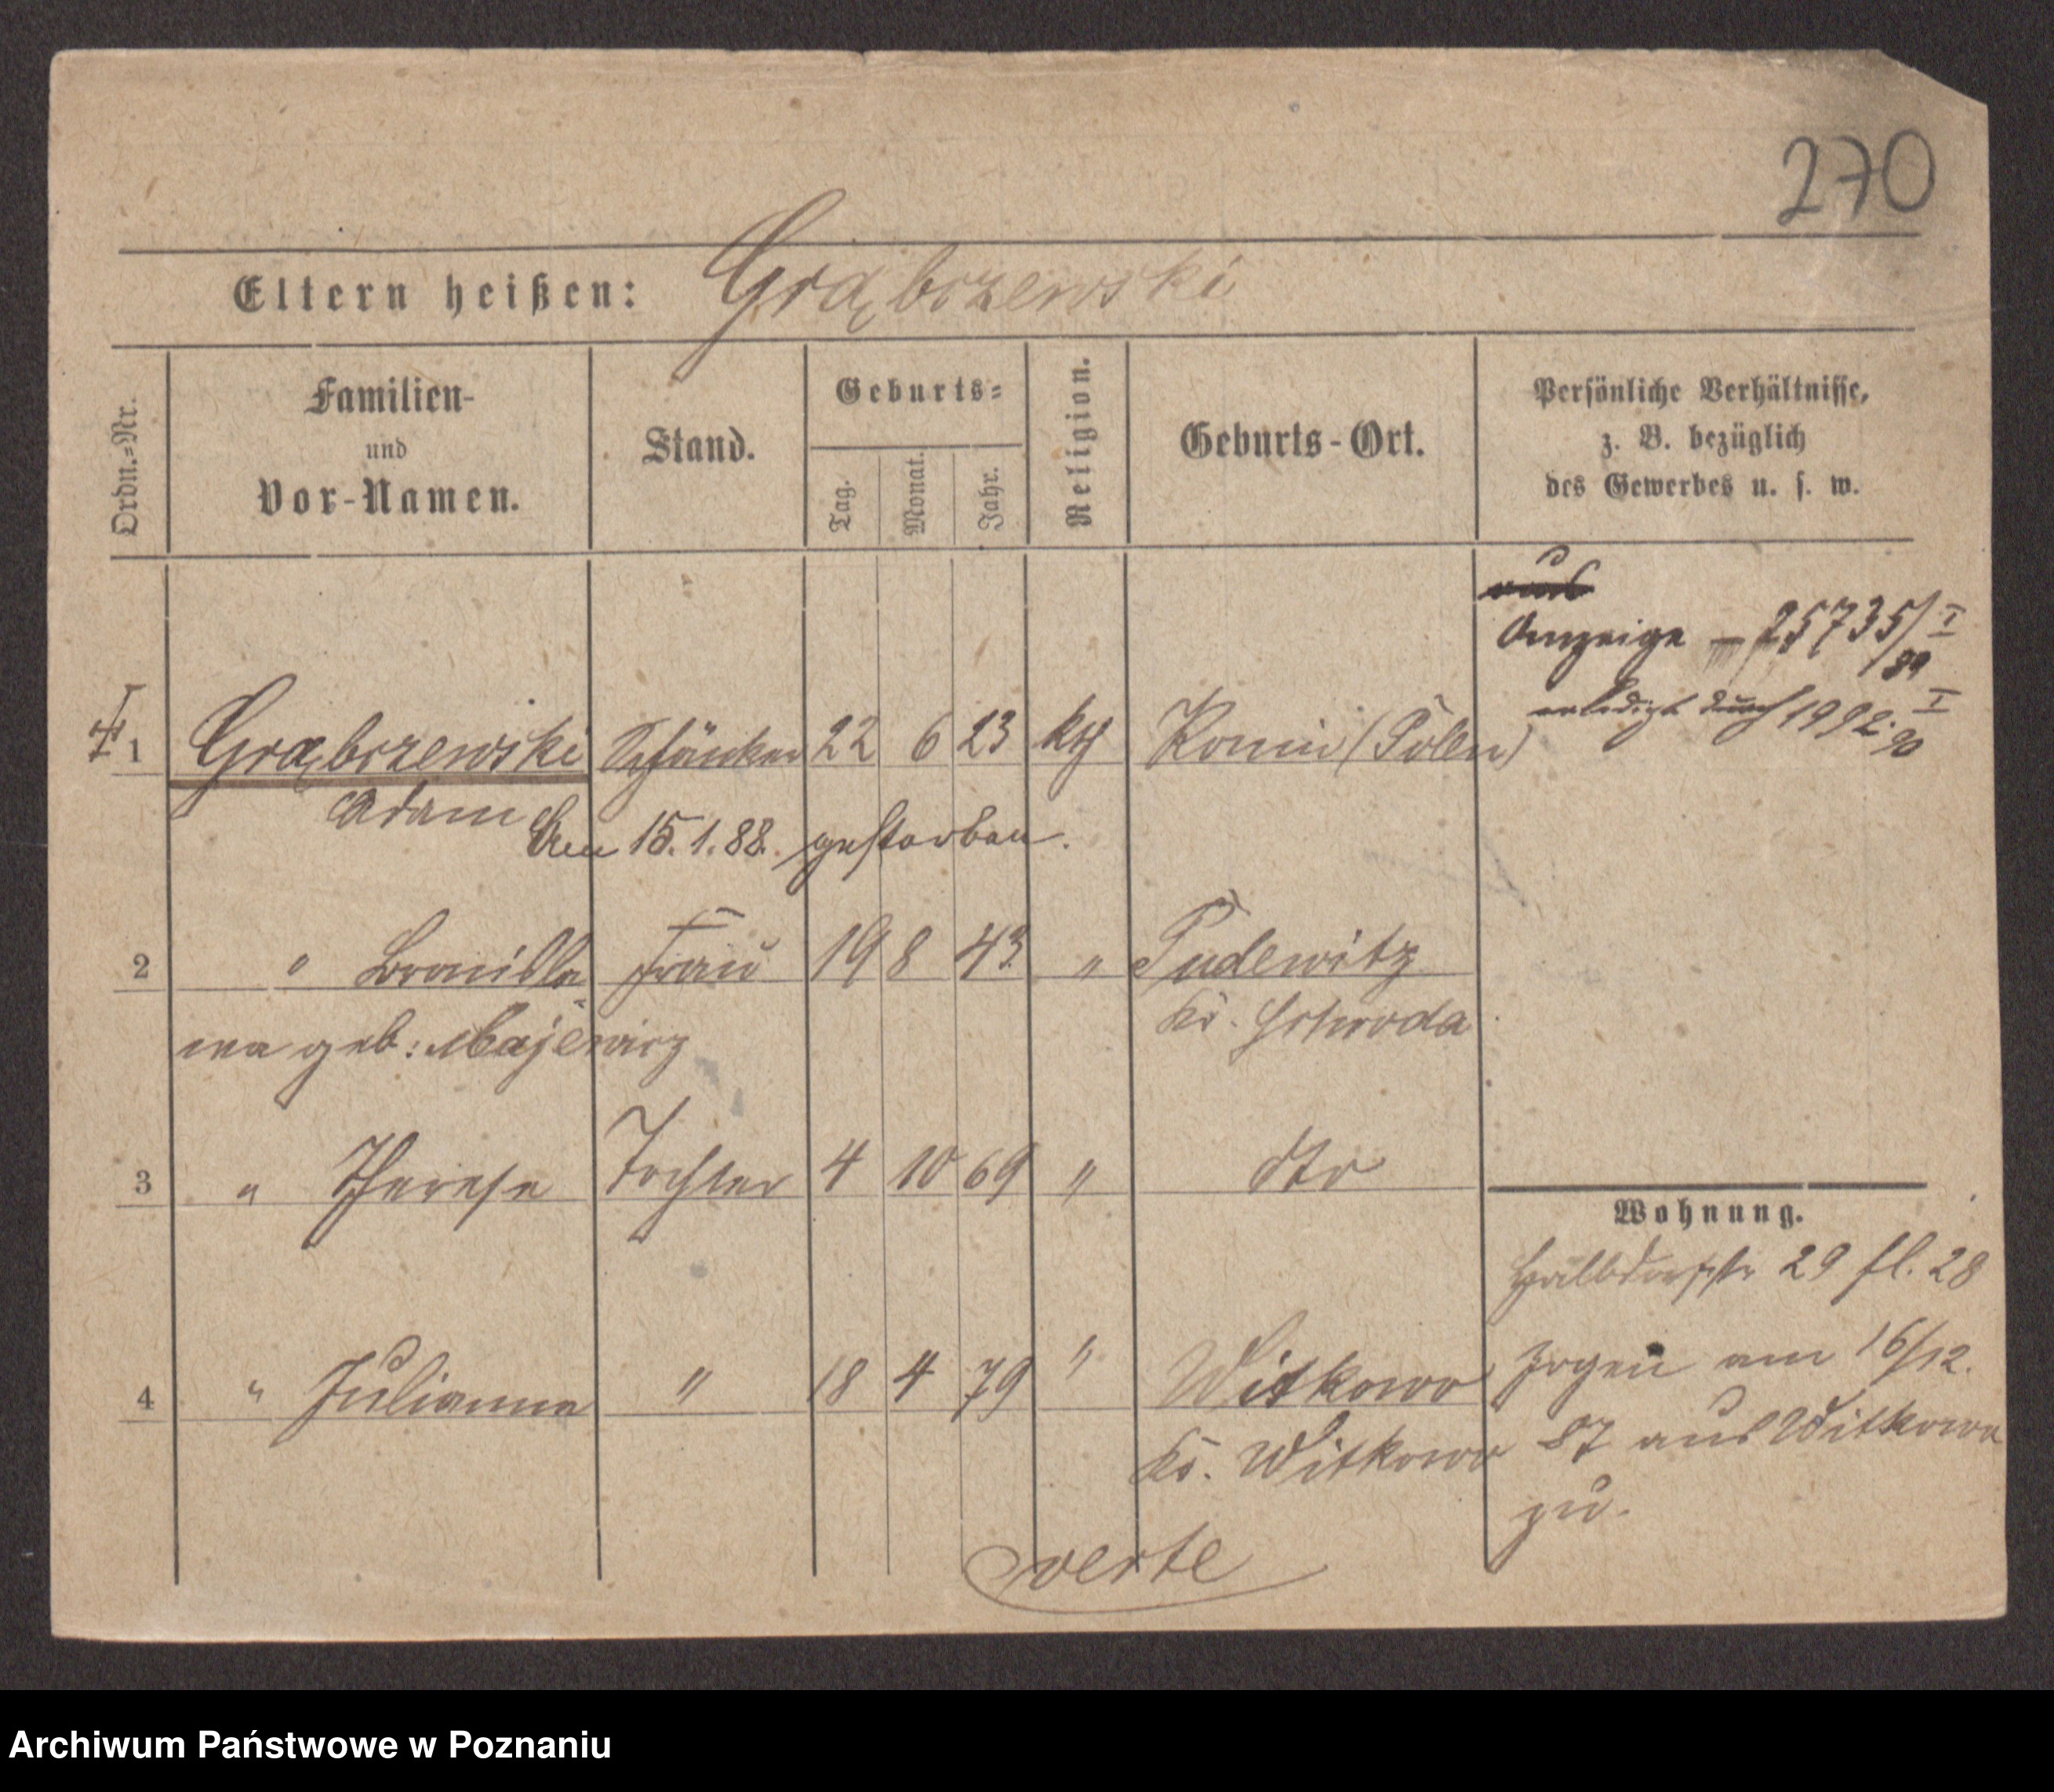 270
Eltern heißen: Grąbrzewski
Ordn.=Nr.
Familien-
und
Vor-Namen.
Stand.
Geburts=
Tag.
Monat.
Jahr.
Religion.
Geburts-Ort.
Persönliche Verhältnisse,
z. B. bezüglich
des Gewerbes u. s. w.
aus
Anzeige 25735/I 89
erledigt durch 1992. I 90
1 Grąbrzewski Schänker 22 6 23 kth Konin (Polen)
Adam Den 15.1.88. gestorben.
2 " Bronisła Frau 19 8 43 " Pudewitz
wa geb: Majewicz Kr. Schroda
3 " Therese Tochter 4 10 69 " dto
Wohnung.
Halbdorfstr 29 fl. 28
4 " Julianna " 18 4 79 " Witkowo
Kr. Witkowo
zogen am 16/12.
87 aus Witkowo
zu.
verte
Archiwum Państwowe w Poznaniu